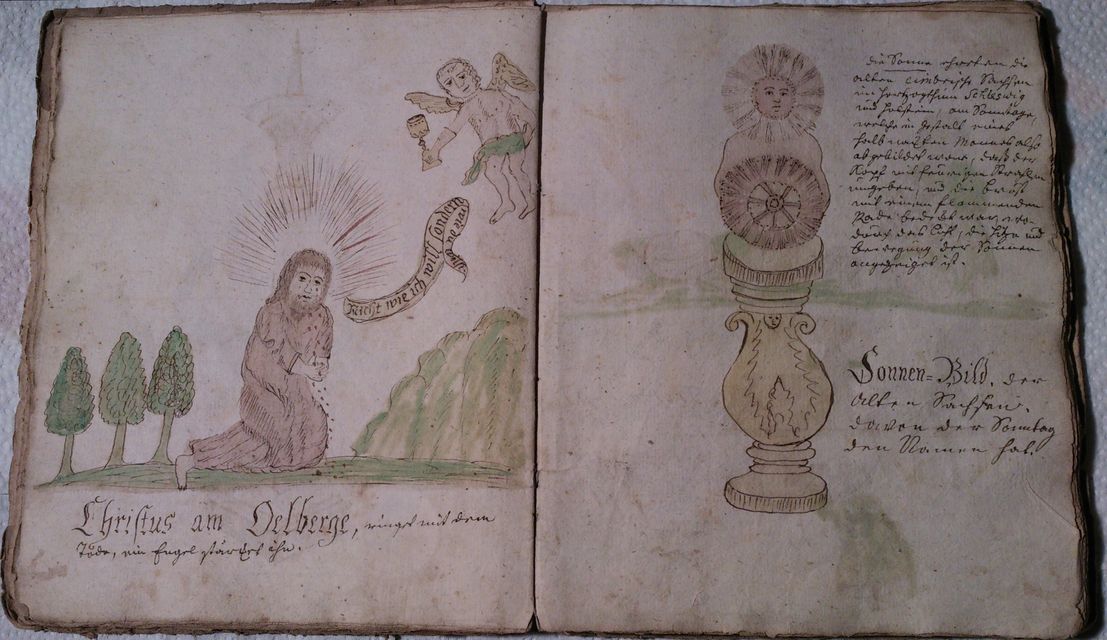 Nicht wie ich will sondern
wie du
Christus am Oelberge, ringet mit dem
Tode, ein Engel stärcket ihn.
die Sonne ehreten die
alten cimbrische Sachsen
im Hertzogthum Schleswig
und Holstein, am Sonntage
welche in gestalt eines
halb nackten Mannes also
abgebildet ware, daß der
Kopf mit feurigen Strahlen
umgeben, und die Brust
mit einem flammenden
Rade bedeckt war, wo-
durch das Licht, die Hitze und
bewegung der Sonnen
angezeiget ist.
Sonnen=Bild, der
alten Sachsen,
davon der Sonntag
den Namen hat.